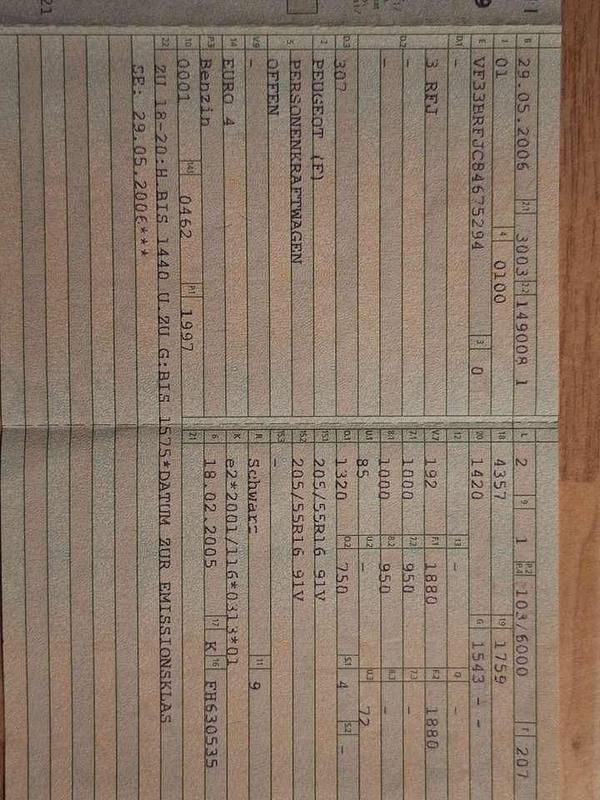 B 29.05.2006 2.1 3003 2.2 149008 1 L 2 9 1 P.2 P.4 103/6000 T 207
J 01 4 0100 18 4357 19 1759
E VF33BRFJC84675294 3 0 20 1420 G 1543 - -
D.1 - 12 - 13 - Q -
3 RFJ V.7 192 F.1 1880 F.2 1880
D.2 - 7.1 1000 7.2 950 7.3 -
- 8.1 1000 8.2 950 8.3 -
U.1 85 U.2 - U.3 72
D.3 307 O.1 1320 O.2 750 S.1 4 S.2 -
2 PEUGEOT (F) 15.1 205/55R16 91V
5 PERSONENKRAFTWAGEN 15.2 205/55R16 91V
OFFEN 15.3 -
V.9 - R Schwarz 11 9
14 EURO 4 K e2*2001/116*0313*01
P.3 Benzin 6 18.02.2005 17 K 16 FH630535
10 0001 14.1 0462 P.1 1997 21
22 ZU 18-20:H BIS 1440 U ZU G:BIS 1575*DATUM ZUR EMISSIONSKLAS
SE: 29.05.2006***
21